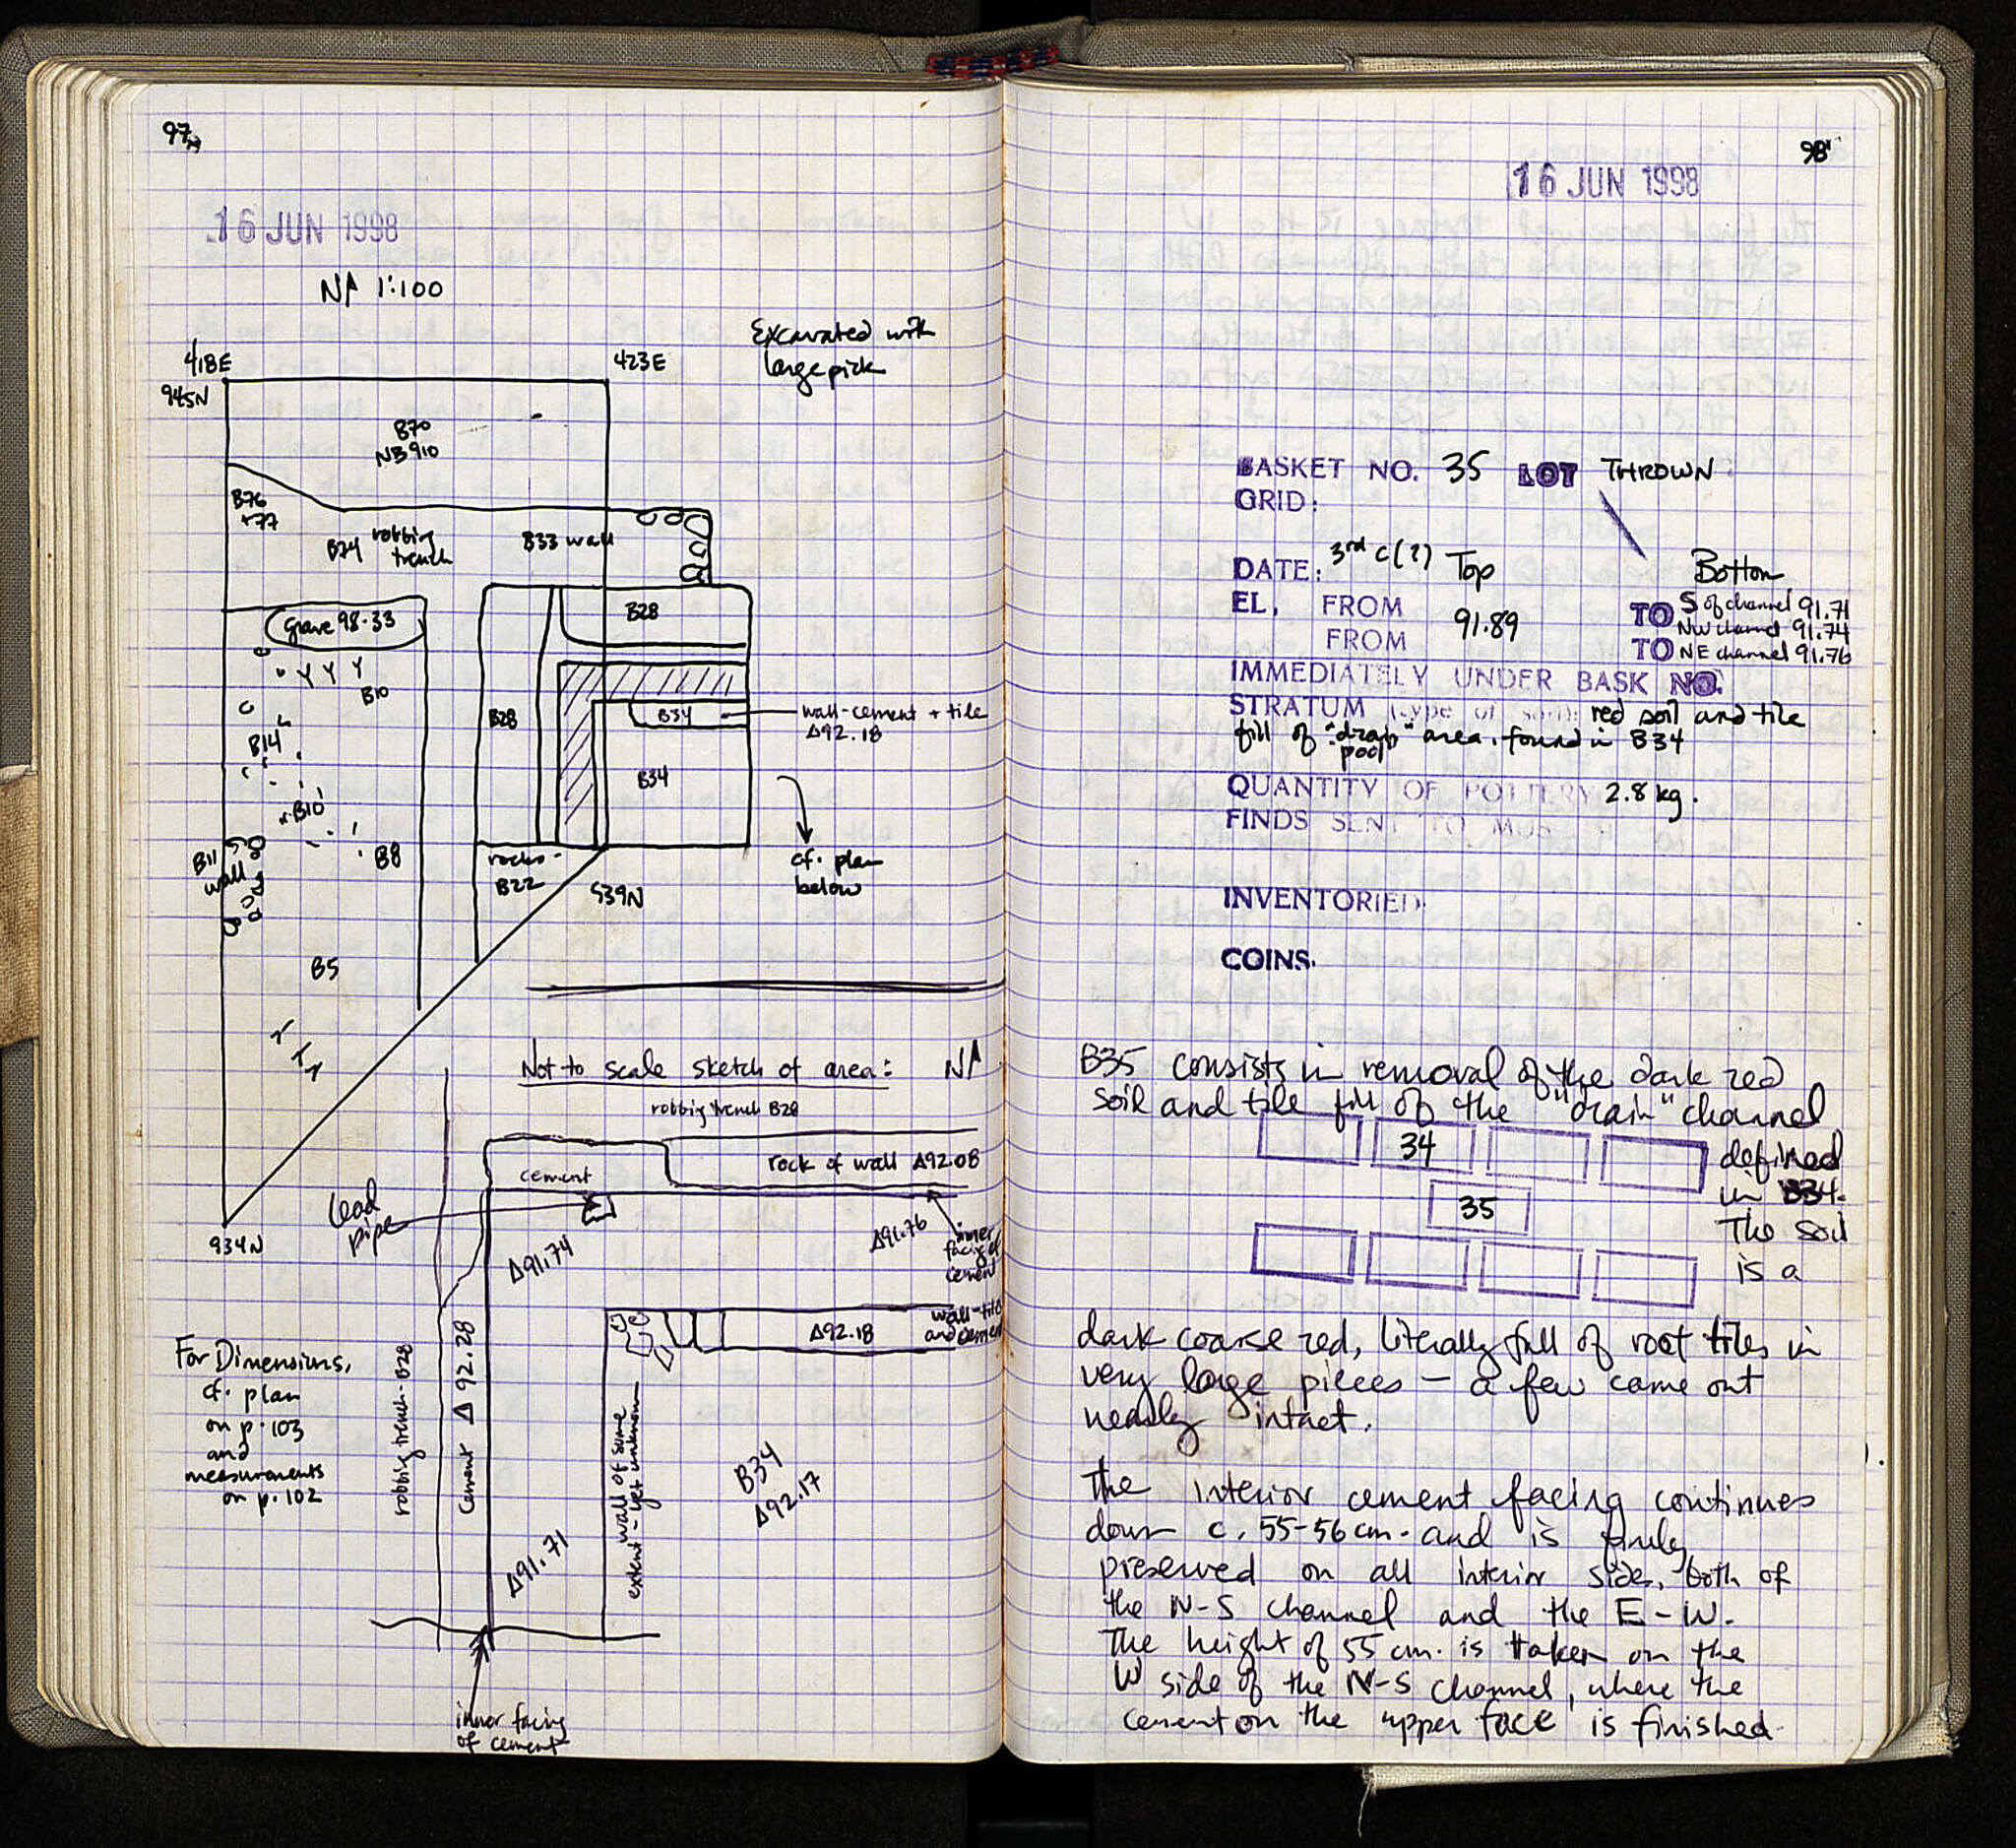 97
16 JUN 1998
N 1:100
Excavated with
large pick
418E
423E
945N
B70
NB910
B76
+77
B74 robbing
trench
B33 wall
Grave 98-33
B28
B10
B28
B34
wall-cement + tile
Δ92.18
B14
B34
B10
B8
B11
wall
rocks-
B22
939N
cf. plan
below
B5
934N
Not to scale sketch of area: N
robbing trench B28
cement
rock of wall Δ92.08
Lead
pipe
Δ91.74
Δ91.76
inner
facing of
cement
wall-tile
and cement
Δ92.18
For Dimensions,
cf. plan
on p. 103
and
measurements
on p. 102
robbing trench-B28
Cement Δ 92.28
wall of some
extent - yet unknown
B34
Δ92.17
Δ91.71
inner facing
of cement
98
16 JUN 1998
BASKET NO. 35 LOT THROWN
GRID:
DATE: 3rd c(?) Top Bottom
EL, FROM 91.89 TO S of channel 91.71
NW channel 91.74
FROM TO NE channel 91.76
IMMEDIATELY UNDER BASK NO.
STRATUM (type of soil): red soil and tile
fill of "drain" area. found in B34
pool
QUANTITY OF POTTERY 2.8 kg.
FINDS SENT TO MUS
INVENTORIED:
COINS.
B35 consists in removal of the dark red
soil and tile fill of the "drain" channel
34
defined
in B34.
35
The soil
is a
dark coarse red, literally full of roof tiles in
very large pieces - a few came out
nearly intact.
The interior cement facing continues
down c. 55-56 cm. and is finely
preserved on all interior sides, both of
the N-S channel and the E-W.
The height of 55 cm. is taken on the
W side of the N-S channel, where the
cement on the "upper face" is finished